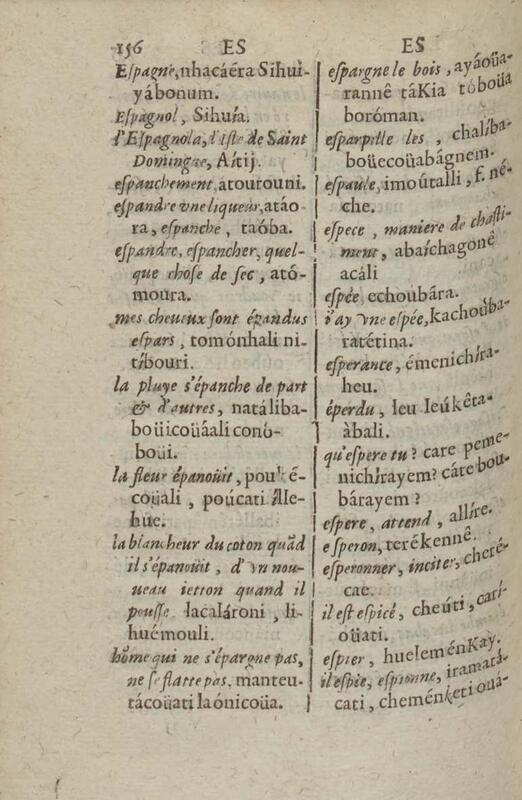 156 ES
Espagne, nhacáéra Sihuí-
yábonum.
Espagnol, Sihuíra.
l'Espagnola, l'isle de Saint
Domingue, Aítij.
espanchement, atourouni.
espandre vne liqueur, atáo
ra, espanche, taóba.
espandre, espancher, quel-
que chose de sec, ató-
moura.
mes cheueux sont épandus
espars, tomónhali ni-
tíbouri.
la pluye s'épanche de part
& d'autres, natáliba-
boüicoüáali conó-
boüi.
la fleur épanoüit, pouk é-
coüali, poúcati ílle-
hue.
la blancheur du coton quãd
il s'épanoüit, d'vn nou-
ueau ietton quand il
pousse. lacalároni, li-
huémouli.
hõme qui ne s'épargne pas,
ne se flatte pas, manteu-
tácoüati laónicoüa.
ES
espargne le bois, ayáoüa-
rannê táKia tóboüa
boróman.
esparpille les, chalíba-
boüecoüabágnem.
espaule, imoútalli, f. né-
che.
espece, maniere de chasti-
ment, abaíchagonê
acáli
espée, echoubára.
i'ay vne espée, kachoúba-
ratétina.
esperance, émenichíra-
heu.
éperdu, leu leúkêta-
àbali.
qu'espere tu? care peme-
nichírayem? cáre bou-
bárayem?
espere, attend, allíre.
esperon, terékennê.
esperonner, inciter, cheré-
cae.
il est espicé, cheúti, catí-
oüati.
espier, hueleménKay.
il espie, espionne, iramatá-
cati, cheménketi ouá-